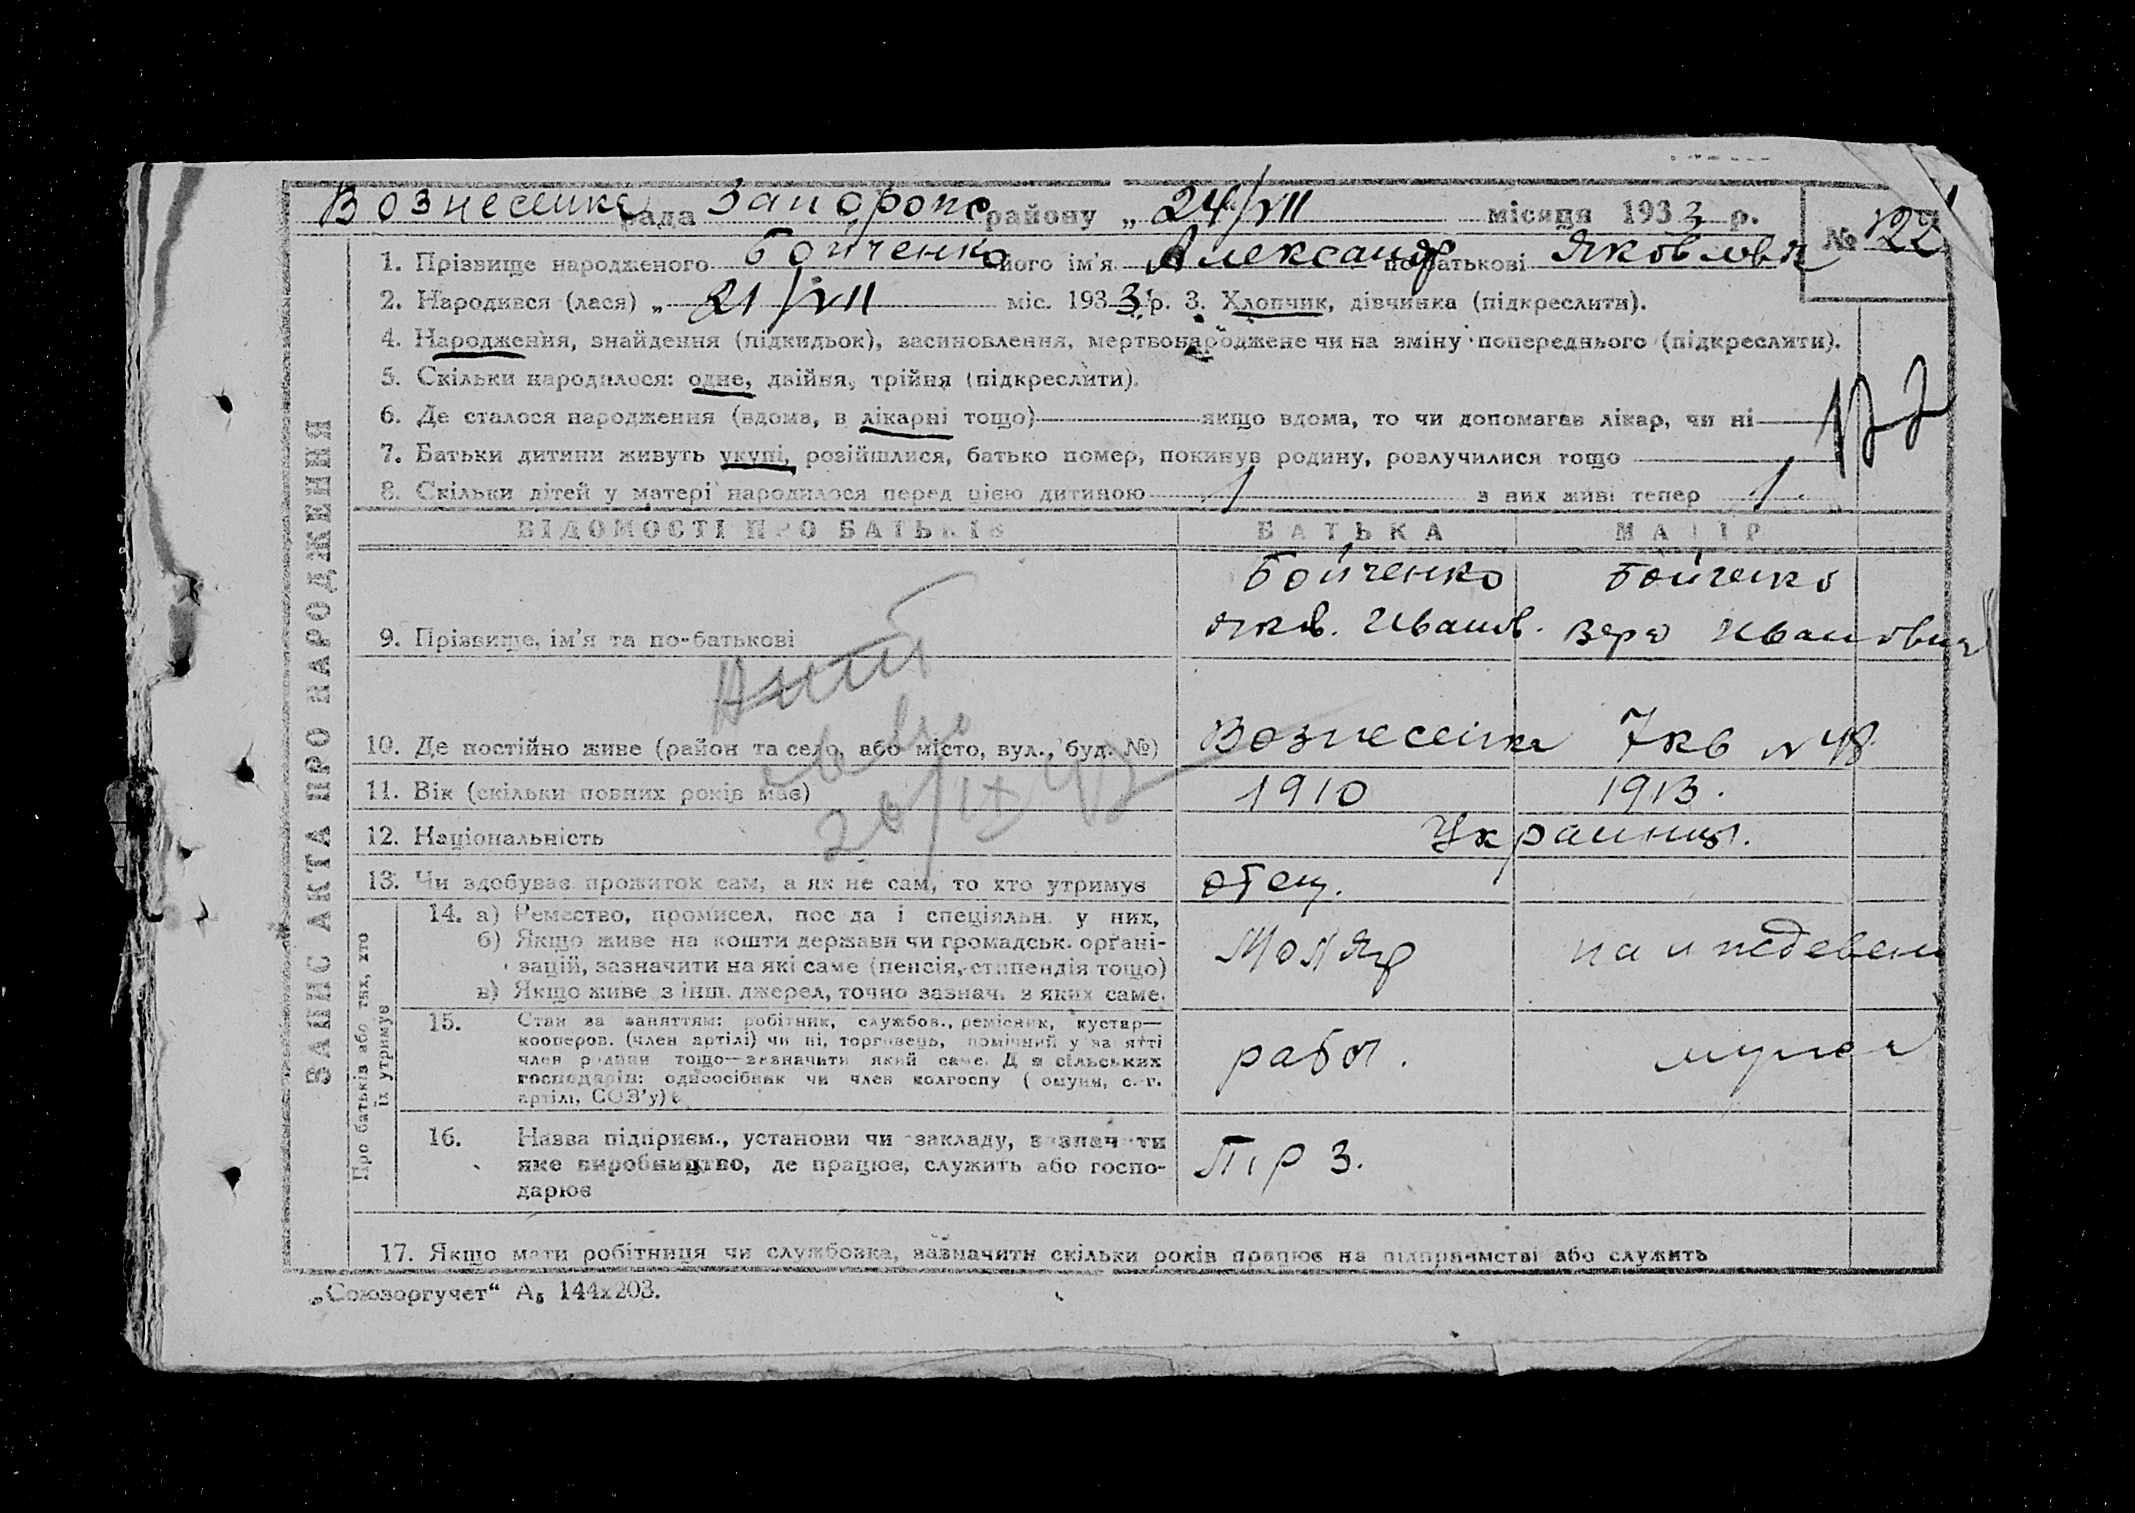 Вознесенка рада Запорож районy „ 24/VII місяця 1933 р.
№ 122
1. Прізвище народженого Бойченко його ім'я Александр по батькові Яковлев
2. Народився (лася) „ 21/VII міс. 1933 р. 3. Хлопчик, дівчинка (підкреслити).
4. Народження, знайдення (підкидьок), засиновлення, мертвонароджене чи на зміну попереднього (підкреслити).
5. Скільки народилося: одне, двійня, трійня (підкреслити).
6. Де сталося народження (вдома, в лікарні тощо) якщо вдома, то чи допомагав лікар, чи ні
7. Батьки дитини живуть укупі, розійшлися, батько помер, покинув родину, розлучилися тощо
8. Скільки дітей у матері народилося перед цією дитиною 1 з них живі тепер 1
ЗАПИС АКТА ПРО НАРОДЖЕННЯ
ВІДОМОСТІ ПРО БАТЬКІВ БАТЬКА МАТІР
Бойченко Бойченко
9. Прізвище, ім'я та по-батькові Яков. Иванов. Вера Ивановна
10. Де постійно живе (район та село, або місто, вул., буд. №) Вознесенка 7 кв № 48
11. Вік (скільки повних років має) 1910 1913.
20/IX 43
12. Національність Украинцы.
13. Чи здобуває прожиток сам, а як не сам, то хто утримує отец.
Про батьків або тих, хто їх утримує
14. а) Ремество, промисел, посада і спеціяльн. у них,
б) Якщо живе на кошти держави чи громадськ. орґані-
зацій, зазначити на які саме (пенсія, стипендія тощо)
в) Якщо живе з інш. джерел, точно зазнач. з яких саме.
Моляр на иждевен
15. Стан за заняттям: робітник, службов., ремісник, кустар—
кооперов. (член артілі) чи ні, торговець, помічний у занятті
член родини тощо—зазначити який саме. Для сільських
господарів: односібник чи член колгоспу (комуни, с.-г.
артілі, СОЗ'у)
рабоч. мужа
16. Назва підприєм., установи чи закладу, зазначити
яке виробництво, де працює, служить або госпо-
дарює
17. Якщо мати робітниця чи службовка, зазначити скільки років працює на підприємстві або служить
„Союзоргучет“ А₅ 144х203.